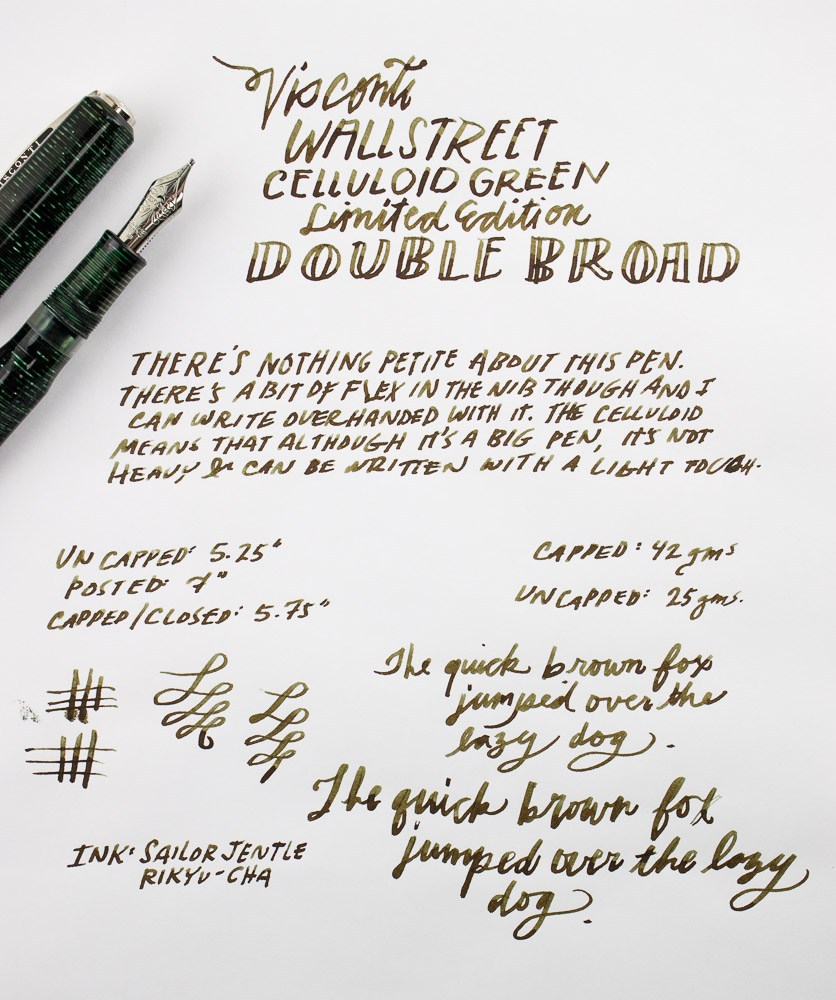 Visconti
WALLSTREET
CELLULOID GREEN
Limited Edition
DOUBLE BROAD
VISCONTI
THERE'S NOTHING PETITE ABOUT THIS PEN.
THERE'S A BIT OF FLEX IN THE NIB THOUGH AND I
CAN WRITE OVERHANDED WITH IT. THE CELLULOID
MEANS THAT ALTHOUGH IT'S A BIG PEN, IT'S NOT
HEAVY & CAN BE WRITTEN WITH A LIGHT TOUCH.
UNCAPPED: 5.25"
POSTED: 7"
CAPPED/CLOSED: 5.75"
CAPPED: 42 gms
UNCAPPED: 25 gms.
The quick brown fox
jumped over the
lazy dog.
The quick brown fox
jumped over the lazy
dog.
INK: SAILOR JENTLE
RIKYU-CHA